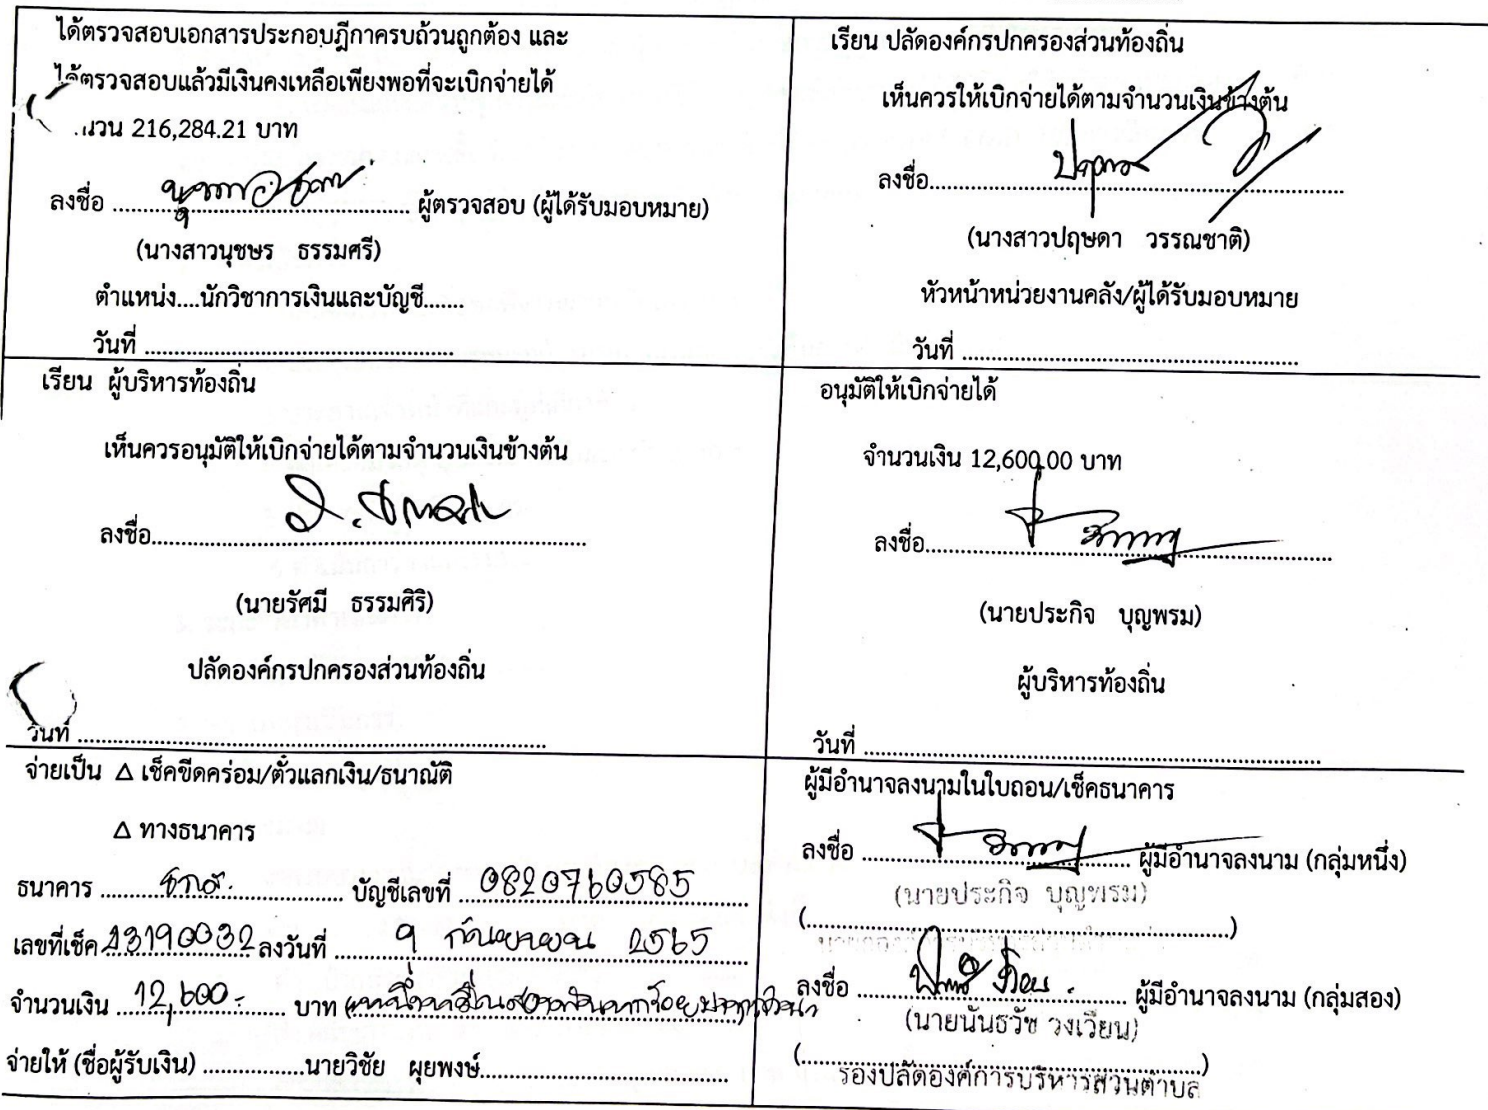 ได้ตรวจสอบเอกสารประกอบฎีกาครบถ้วนถูกต้อง และ
ได้ตรวจสอบแล้วมีเงินคงเหลือเพียงพอที่จะเบิกจ่ายได้
216,284.21 บาท
ลงชื่อ ........................ ผู้ตรวจสอบ (ผู้ได้รับมอบหมาย)
(นางสาวนุชษร ธรรมศรี)
ตำแหน่ง....นักวิชาการเงินและบัญชี.......
วันที่ ........................
เรียน ปลัดองค์กรปกครองส่วนท้องถิ่น
เห็นควรให้เบิกจ่ายได้ตามจำนวนเงินข้างต้น
ลงชื่อ........................
(นางสาวปฤษดา วรรณชาติ)
หัวหน้าหน่วยงานคลัง/ผู้ได้รับมอบหมาย
วันที่ ........................
เรียน ผู้บริหารท้องถิ่น
เห็นควรอนุมัติให้เบิกจ่ายได้ตามจำนวนเงินข้างต้น
ลงชื่อ........................
(นายรัศมี ธรรมศิริ)
ปลัดองค์กรปกครองส่วนท้องถิ่น
วันที่ ........................
อนุมัติให้เบิกจ่ายได้
จำนวนเงิน 12,600.00 บาท
ลงชื่อ........................
(นายประกิจ บุญพรม)
ผู้บริหารท้องถิ่น
วันที่ ........................
จ่ายเป็น Δ เช็คขีดคร่อม/ตั๋วแลกเงิน/ธนาณัติ
Δ ทางธนาคาร
ธนาคาร ธกส. บัญชีเลขที่ 0820760585
เลขที่เช็ค 23190032 ลงวันที่ 9 กันยายน 2565
จำนวนเงิน 12,600.- บาท (หนึ่งหมื่นสองพันหกร้อยบาทถ้วน)
จ่ายให้ (ชื่อผู้รับเงิน) .................นายวิชัย ผุยพงษ์........................
ผู้มีอำนาจลงนามในใบถอน/เช็คธนาคาร
ลงชื่อ ........................ ผู้มีอำนาจลงนาม (กลุ่มหนึ่ง)
(นายประกิจ บุญพรม)
(........................)
ลงชื่อ ........................ ผู้มีอำนาจลงนาม (กลุ่มสอง)
(นายนันธวัช วงเวียน)
(........................)
รองปลัดองค์การบริหารส่วนตำบล